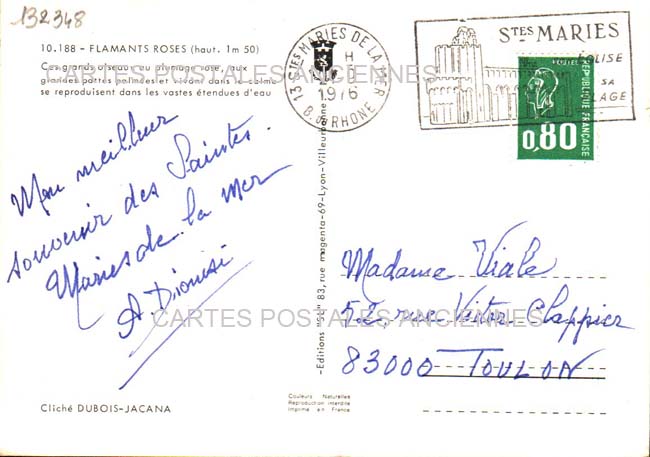 132348
10.188 - FLAMANTS ROSES (haut. 1m 50)
Ces grands oiseaux au plumage rose, aux
grandes pattes palmées et vivant dans le calme
se reproduisent dans les vastes étendues d'eau
CARTES POSTALES ANCIENNES
13 STES MARIES DE LA MER
1976
B. DU RHONE
STES MARIES
EGLISE
SA
PLAGE
0,80
REPUBLIQUE FRANÇAISE
Mon meilleur
souvenir des Saintes
Maries de la mer
A. Dionisi
-Editions "SL" 83, rue magenta-69-Lyon-Villeurbanne
Madame Viale
52, rue Victor Clappier
83000 TOULON
CARTES POSTALES ANCIENNES
Cliché DUBOIS-JACANA
Couleurs Naturelles
Reproduction interdite
Imprimé en France